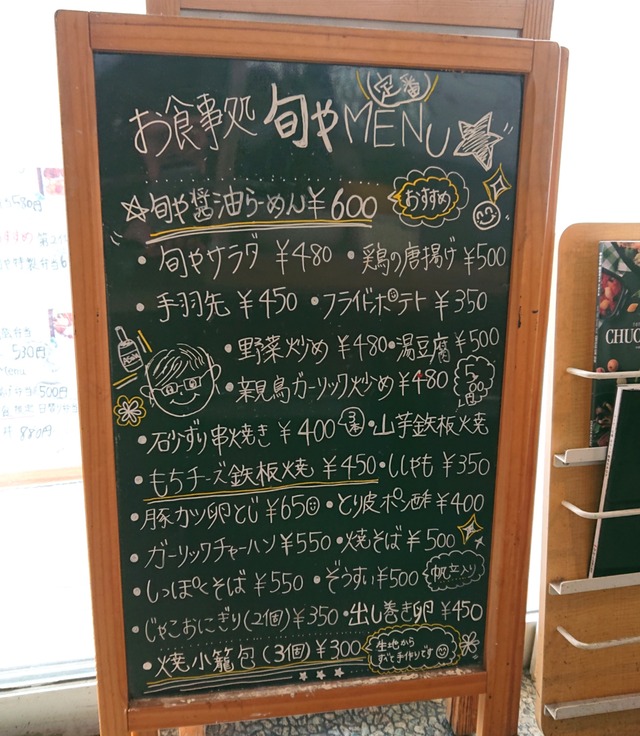 定番
お食事処 旬や MENU
☆旬や醤油らーめん ¥600 おすすめ
・旬やサラダ ¥480 ・鶏の唐揚げ ¥500
・手羽先 ¥450 ・フライドポテト ¥350
・野菜炒め ¥480 ・湯豆腐 ¥500
・親鳥ガーリック炒め ¥480
・石ずり串焼き ¥400 3本 ・山芋鉄板焼 500円
・もちチーズ鉄板焼 ¥450 ・ししゃも ¥350
・豚カツ卵とじ ¥650 ・とり皮ポン酢 ¥400
・ガーリックチャーハン ¥550 ・焼そば ¥500
・しっぽくそば ¥550 ・ぞうすい ¥500 帆立入り
・じゃこおにぎり(2個) ¥350 ・出し巻き卵 ¥450
・焼小籠包(3個) ¥300 生地からずっと手作りです
530円
500円
880円
CHUC